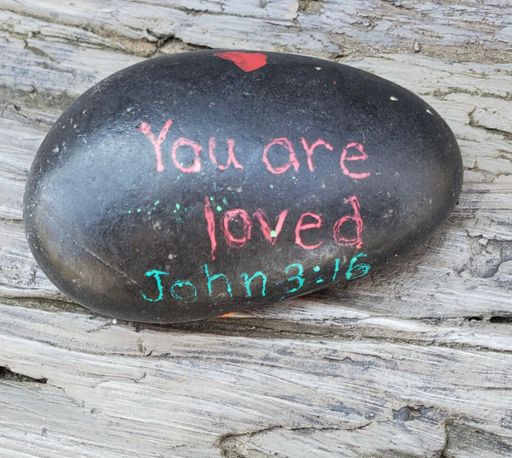 You are
loved
John 3:16